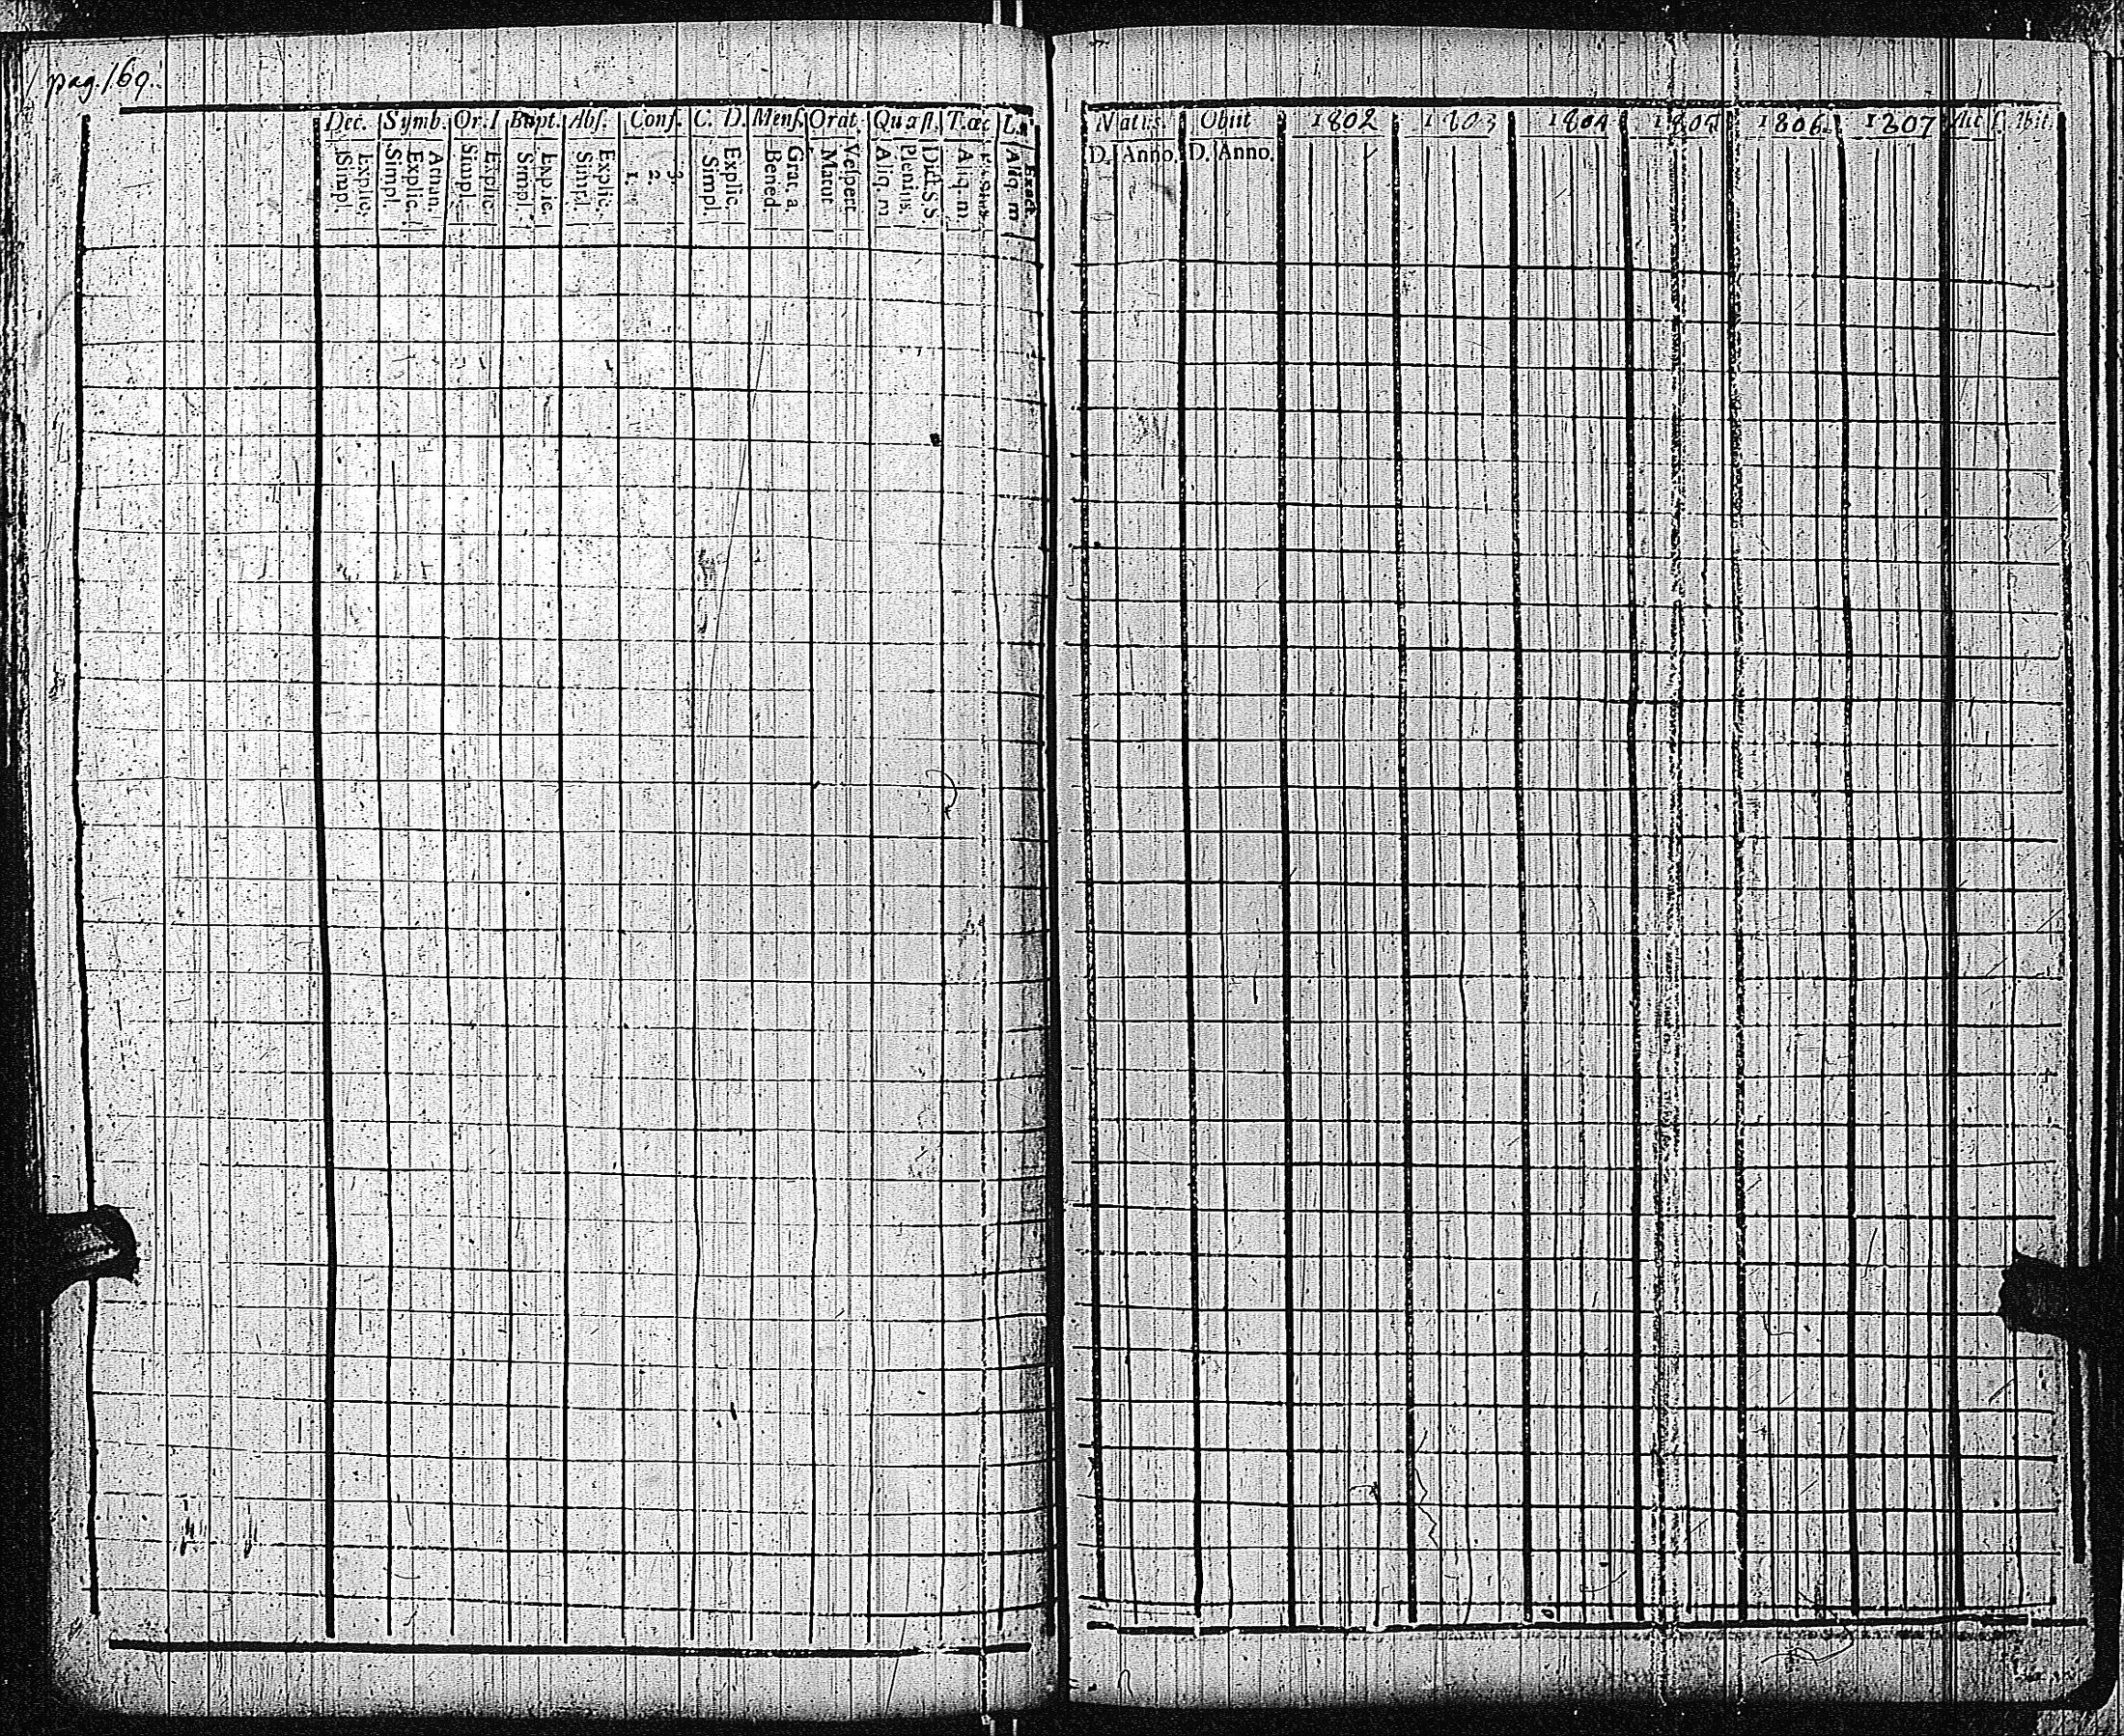 pag. 169.
Dec. Symb. Or. I Bapt. Abs. Conf. C. D. Mens. Orat. Quæst. T. œc L.
Explic. Simpl.
Athan. Explic. Simpl.
Explic. Simpl.
Explic. Simpl.
Explic. Simpl.
3. 2. 1.
Explic. Simpl.
Grat. a. Bened.
Vespert. Matut.
Dict. S S Plenius. Aliq. m
Aliq. m.
Exact. Aliq. m
Natus. Obiit 1802 1803 1804 1805 1806. 1807
D. Anno. D. Anno.